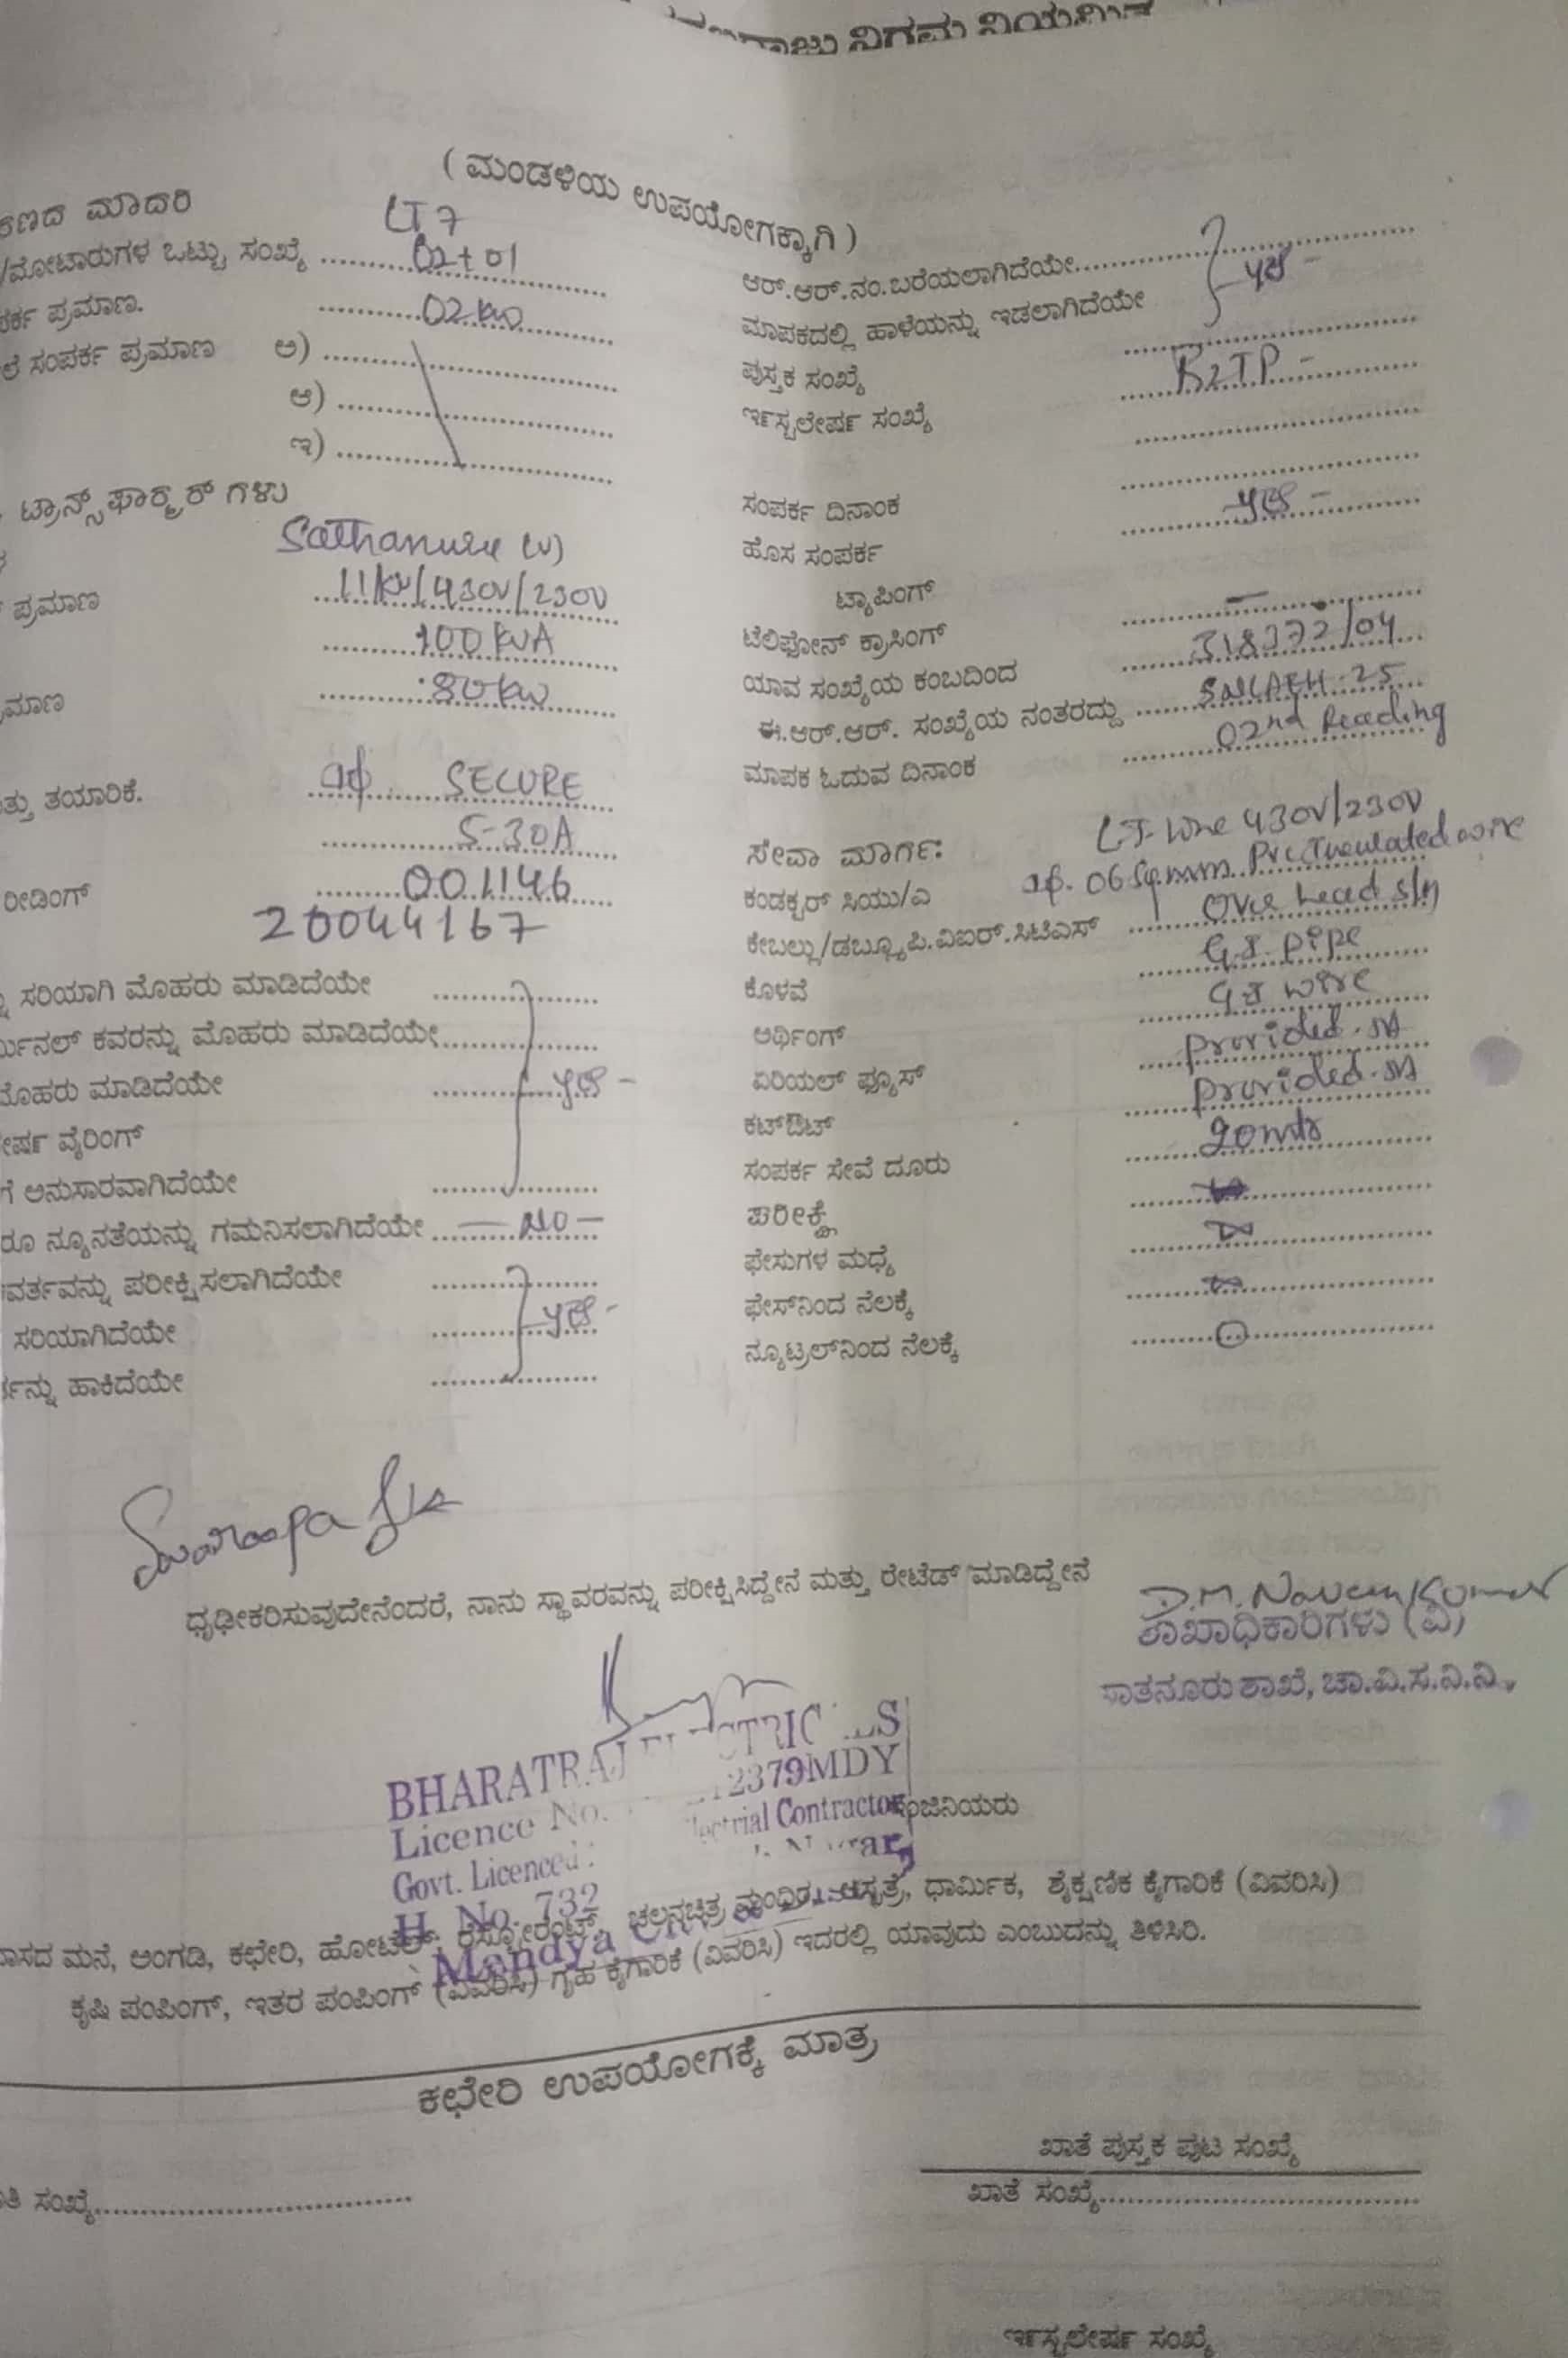 ನಿಗಮ ನಿಯಮಿತ
( ಮಂಡಳಿಯ ಉಪಯೋಗಕ್ಕಾಗಿ )
ಮಾದರಿ LT 7
/ಮೋಟಾರುಗಳ ಒಟ್ಟು ಸಂಖ್ಯೆ 02+01
ಪ್ರಮಾಣ. 02 kw
ಸಂಪರ್ಕ ಪ್ರಮಾಣ ಅ)
ಆ)
ಇ)
ಟ್ರಾನ್ಸ್‌ಫಾರ್ಮರ್ ಗಳು
Sathanuru (v)
ಪ್ರಮಾಣ 11KV/430V/230V
100 KVA
80 kw
ತಯಾರಿಕೆ. 1φ SECURE
5-30A
ರೀಡಿಂಗ್ 001146
20044167
ಸರಿಯಾಗಿ ಮೊಹರು ಮಾಡಿದೆಯೇ
ಕವರನ್ನು ಮೊಹರು ಮಾಡಿದೆಯೇ
ಮೊಹರು ಮಾಡಿದೆಯೇ yes -
ವೈರಿಂಗ್
ಅನುಸಾರವಾಗಿದೆಯೇ
ನ್ಯೂನತೆಯನ್ನು ಗಮನಿಸಲಾಗಿದೆಯೇ — NO —
ಪರೀಕ್ಷಿಸಲಾಗಿದೆಯೇ
ಸರಿಯಾಗಿದೆಯೇ yes -
ಹಾಕಿದೆಯೇ
ಆರ್.ಆರ್.ನಂ.ಬರೆಯಲಾಗಿದೆಯೇ
ಮಾಪಕದಲ್ಲಿ ಹಾಳೆಯನ್ನು ಇಡಲಾಗಿದೆಯೇ yes -
ಪುಸ್ತಕ ಸಂಖ್ಯೆ
ಇನ್‌ಸ್ಟಲೇಷನ್ ಸಂಖ್ಯೆ
ಸಂಪರ್ಕ ದಿನಾಂಕ
ಹೊಸ ಸಂಪರ್ಕ yes -
ಟ್ಯಾಪಿಂಗ್
ಟೆಲಿಫೋನ್ ಕ್ರಾಸಿಂಗ್ —
ಯಾವ ಸಂಖ್ಯೆಯ ಕಂಬದಿಂದ 318372/04
ಈ.ಆರ್.ಆರ್. ಸಂಖ್ಯೆಯ ನಂತರದ್ದು
ಮಾಪಕ ಓದುವ ದಿನಾಂಕ 02nd Reading
ಸೇವಾ ಮಾರ್ಗ: LT. Line 430V/230V
ಕಂಡಕ್ಟರ್ ಸಿಯು/ಎ 1φ. 06 Sqmm wire
ಕೇಬಲ್ಲು/ಡಬ್ಲ್ಯೂಪಿ.ವಿಐಆರ್.ಸಿಟಿಎಸ್ Over head
ಕೊಳವೆ G.I. pipe
ಅರ್ಥಿಂಗ್ G.I wire
ಏರಿಯಲ್ ಫ್ಯೂಸ್ provided.
ಕಟ್‌ಔಟ್ provided.
ಸಂಪರ್ಕ ಸೇವೆ ದೂರು 20mts
ಪರೀಕ್ಷೆ
ಫೇಸುಗಳ ಮಧ್ಯೆ
ಫೇಸ್‌ನಿಂದ ನೆಲಕ್ಕೆ
ನ್ಯೂಟ್ರಲ್‌ನಿಂದ ನೆಲಕ್ಕೆ
ಧೃಢೀಕರಿಸುವುದೇನೆಂದರೆ, ನಾನು ಸ್ಥಾವರವನ್ನು ಪರೀಕ್ಷಿಸಿದ್ದೇನೆ ಮತ್ತು ರೇಟೆಡ್ ಮಾಡಿದ್ದೇನೆ
D.M. Naveen Kumar
ಶಾಖಾಧಿಕಾರಿಗಳು (ವಿ)
ಸಾತನೂರು ಶಾಖೆ, ಚಾ.ವಿ.ಸ.ನಿ.ನಿ.,
BHARATRAJ
Licence No. 2379MDY
Govt. Licenced Contractor
H. No. 732
Mandya
ಮನೆ, ಅಂಗಡಿ, ಕಛೇರಿ, ಹೋಟೆಲ್, ರೆಸ್ಟೋರೆಂಟ್, ಚಲನಚಿತ್ರ ಮಂದಿರ, ಆಸ್ಪತ್ರೆ, ಧಾರ್ಮಿಕ, ಶೈಕ್ಷಣಿಕ ಕೈಗಾರಿಕೆ (ವಿವರಿಸಿ)
ಕೃಷಿ ಪಂಪಿಂಗ್, ಇತರ ಪಂಪಿಂಗ್ (ವಿವರಿಸಿ) ಗೃಹ ಕೈಗಾರಿಕೆ (ವಿವರಿಸಿ) ಇದರಲ್ಲಿ ಯಾವುದು ಎಂಬುದನ್ನು ತಿಳಿಸಿರಿ.
ಕಛೇರಿ ಉಪಯೋಗಕ್ಕೆ ಮಾತ್ರ
ಖಾತೆ ಪುಸ್ತಕ ಪುಟ ಸಂಖ್ಯೆ
ಸಂಖ್ಯೆ
ಖಾತೆ ಸಂಖ್ಯೆ
ಇನ್‌ಸ್ಟಲೇಷನ್ ಸಂಖ್ಯೆ